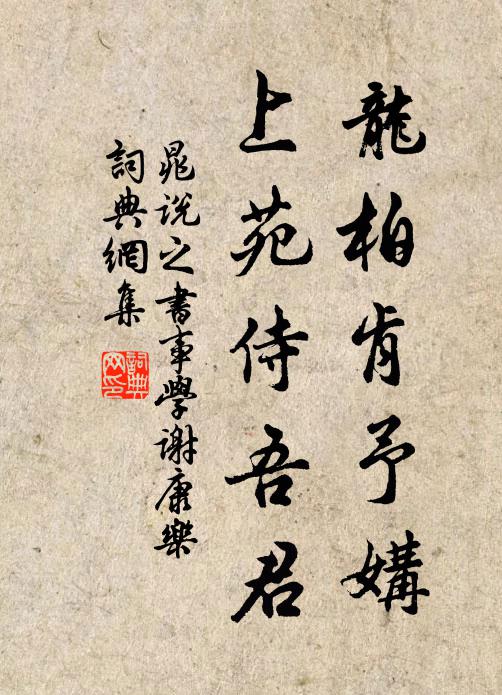 龍柏肯予媾
上苑侍吾君
晁說之書事學謝康樂
詞典網集
詞典網印